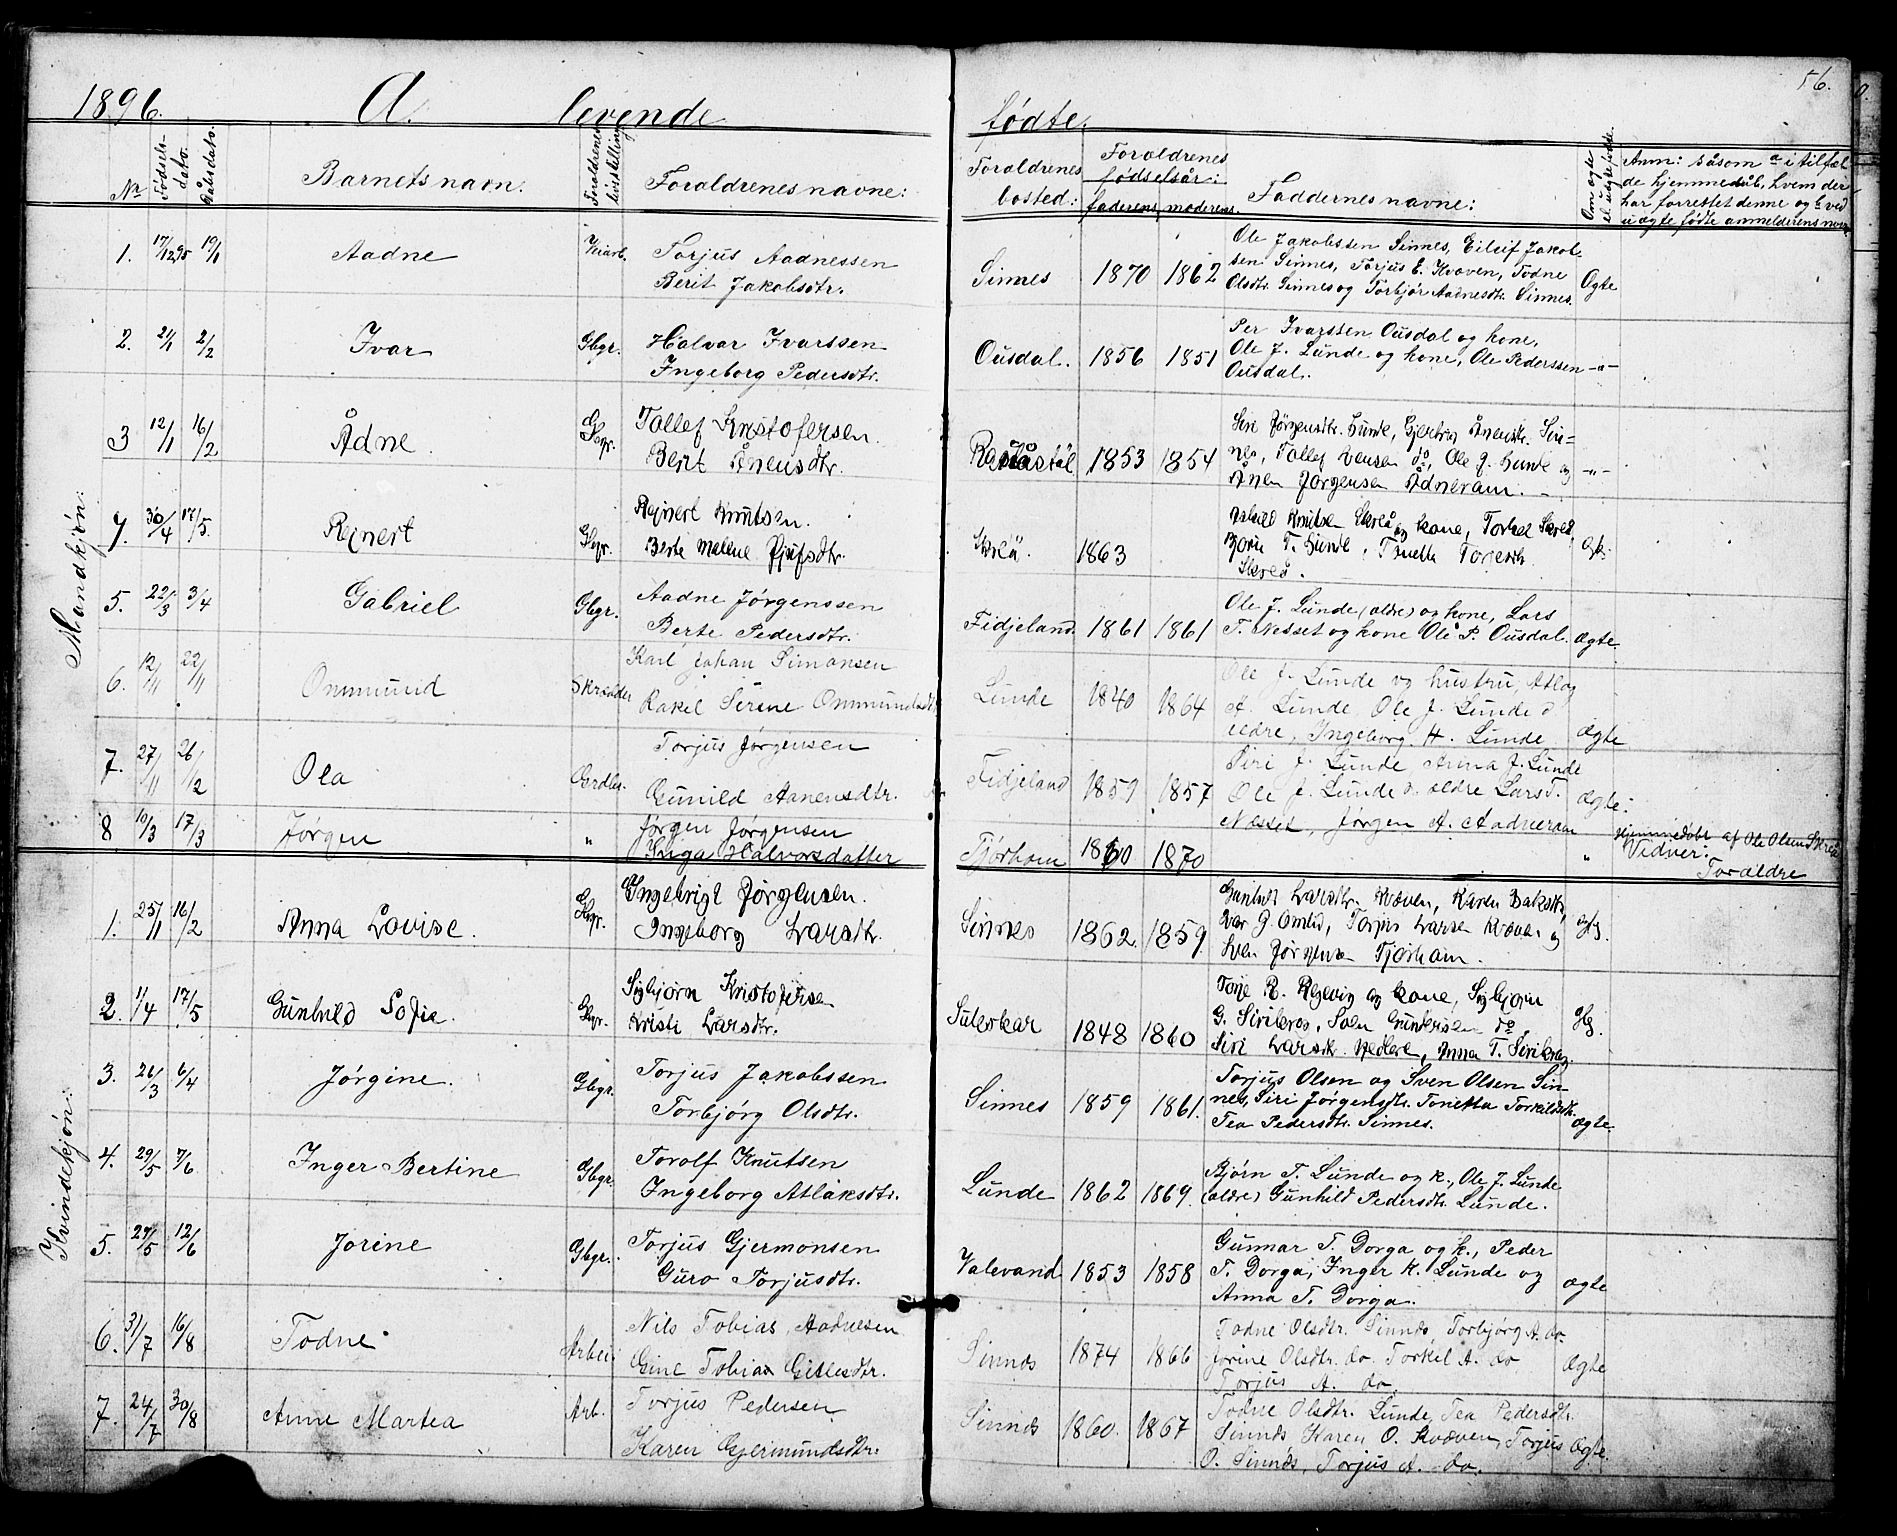 56.
1896. A. levende fødte.
No Fødsels-dato. Dåbsdato. Barnets navn. Forældrenes livsstilling Forældrenes navne: Forældrenes bosted: Forældrenes fødselsår: faderens, moderens. Faddernes navne: Om ægte el. uægte fødte. Anm: såsom a i tilfæl-
de hjemmedåb, hvem der
har forrettet denne og b ved
uægte fødte anmelderens navn
Mandkjøn:
1. 17/12 95 19/1 Aadne Veiarb. Torjus Aadnessen Sinnes 1870 1862 Ole Jakobssen Sinnes, Eileif Jakob-
Berit Jakobsdtr. sen Sinnes, Torjus E. Kvæven, Todne Ægte
Olsdtr. Sinnes og Torbjør Aadnesdtr. Sinnes.
2. 21/1 2/2 Ivar Gbgr. Halvar Ivarssen Ousdal. 1856 1851 Per Ivarssen Ousdal og kone,
Ingeborg Pedersdtr. Ole J. Lunde og kone, Ole Pederssen -"-
Ousdal.
3 12/1 16/2 Ådne Gbgr. Tallef Kristofersen. 1853 1854 Siri Jørgensdtr. Lunde, Sir-
Berit Ånensdtr. nes, Tallef do, Ole J. Lunde og -"-
Ånen Jørgensen Ådneram.
4. 30/4 17/5. Rejnert Gbgr. Rejnert Knutsen. Skreå 1863 Knutsen Skreå og kone, Torkel Skreå,
Berte Malene Bjørn T. Lunde,
Skreå.
5. 22/3 3/4 Gabriel Gbgr. Aadne Jørgenssen Fidjeland. 1861 1861 Ole J. Lunde (ældre) og kone, Lars
Berte Pedersdtr. T. Nesset og kone Ole P. Ousdal. ægte.
6. 12/11 22/11 Ommund Skrædder Karl Johan Simonsen Lunde 1840 1864 Ole J. Lunde og hustru, Atlag
Rakel Serine Ommundsdtr A. Lunde Ole J. Lunde d.
ældre, Ingeborg. H. Lunde ægte
7. 27/11 26/12 Ola Grdbr. Torjus Jørgensen Fidjeland 1859 1857 Siri J. Lunde Anna J. Lunde
Gunild Aanensdtr. Ole J. Lunde d. ældre Lars T. ægte.
Næsset, Jørgen A. Aadneram
8 10/3 17/3 Jørgen " Jørgen Jørgensen Tjørhom 1860 1870 " Hjemmedøbt af Ole Olsen Skreå
Inga Halvorsdatter Vidner:
Forældre
Kvindekjøn:
1. 25/1 16/2 Anna Lovise. Gbgr. Ingebrigt Jørgensen. Sinnes 1862. 1859. Gunhild Larsdtr. Kvæven, Karen
Ingeborg Larsdtr. Ivar G. Omlid, Torjus Larsen Kvæven og
Sven Jørgensen Tjørham.
2. 1/4 17/5 Gunhild Sofie. Gbgr. Sigbjørn Kristofersen Suleskar 1848 1860 Tore R. og kone, Sigbjørn
Kristi Larsdtr. G. Salm Gundersen do,
Siri Larsdtr. Anna T.
3. 26/3 6/4 Jørgine. Gbgr. Torjus Jakobssen Sinnes 1859 1861. Torjus Olsen og Sven Olsen Sin-
Torbjørg Olsdtr. nes, Siri Jørgensdtr. Tonetta Torkildsdtr. ægte.
Tea Pedersdtr. Sinnes.
4. 29/5 7/6 Inger Bertine Gbgr. Torolf Knutsen Lunde 1862 1869. Bjørn T. Lunde og k., Ole J. Lunde
Ingeborg Atlaksdtr. (ældre) Gunhild Pedersdtr. Lunde.
5. 27/5 12/6 Jorine Gbgr. Torjus Gjermonsen Valevand 1853 1858 Gunnar T. Dorga og k., Peder
Guro Torjusdtr. T. Dorga, Inger K. Lunde og ægte
Anna T. Dorga.
6. 31/7 16/8 Todne Arbei: Nils Tobias Aadnesen Sinnes 1874 1866 Todne Olsdtr. Sinnes, Torbjørg A. do.
Gine Tobia Gitlesdtr. Jorine Olsdtr. do. Torkel A. do Ægte
Torjus A. do.
7. 24/7 30/8 Anne Martea Arb. Torjus Pedersen Sinnes 1860. 1867 Todne Olsdtr. Lunde, Tea Pedersdtr.
Karen Gjermundsdtr. Sinnes Karen O. Kvæven, Torjus Ægte.
O. Sinnes, Torjus A. do.